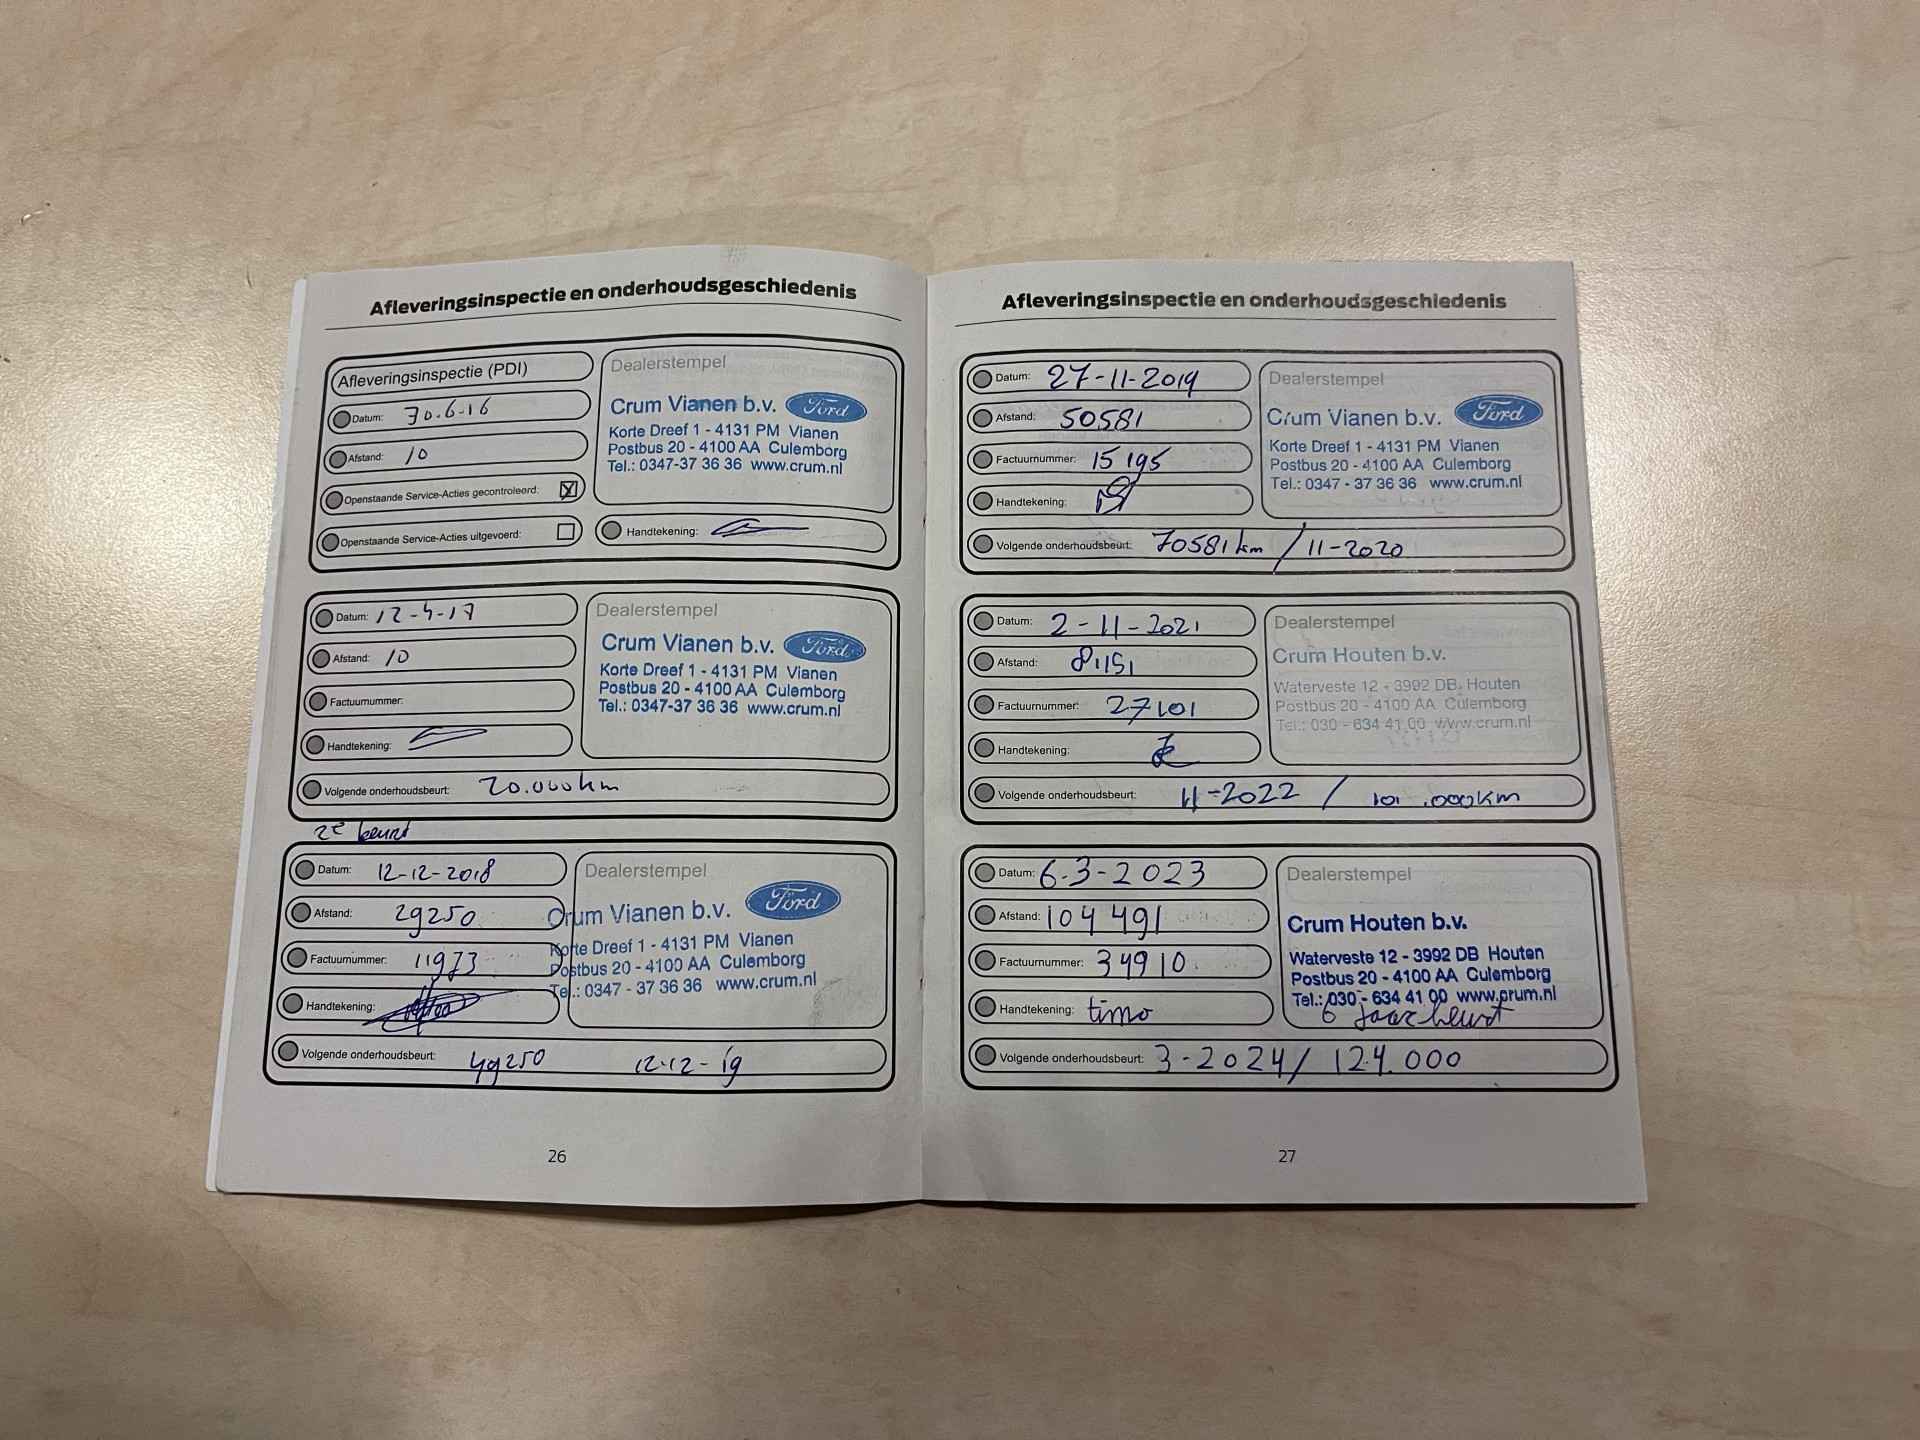 Afleveringsinspectie en onderhoudsgeschiedenis
Afleveringsinspectie (PDI)
Datum: 30.6-16
Afstand: 10
Openstaande Service-Acties gecontroleerd:
Openstaande Service-Acties uitgevoerd:
Dealerstempel
Crum Vianen b.v. Ford
Korte Dreef 1 - 4131 PM Vianen
Postbus 20 - 4100 AA Culemborg
Tel.: 0347-37 36 36 www.crum.nl
Handtekening:
Datum: 12-4-17
Afstand: 10
Factuurnummer:
Handtekening:
Dealerstempel
Crum Vianen b.v. Ford
Korte Dreef 1 - 4131 PM Vianen
Postbus 20 - 4100 AA Culemborg
Tel.: 0347-37 36 36 www.crum.nl
Volgende onderhoudsbeurt: 20.000km
2e beurt
Datum: 12-12-2018
Afstand: 29250
Factuurnummer: 11973
Handtekening:
Dealerstempel
Crum Vianen b.v. Ford
Korte Dreef 1 - 4131 PM Vianen
Postbus 20 - 4100 AA Culemborg
Tel.: 0347 - 37 36 36 www.crum.nl
Volgende onderhoudsbeurt: 49250 12-12-19
26
Afleveringsinspectie en onderhoudsgeschiedenis
Datum: 27-11-2019
Afstand: 50581
Factuurnummer: 15195
Handtekening:
Dealerstempel
Crum Vianen b.v. Ford
Korte Dreef 1 - 4131 PM Vianen
Postbus 20 - 4100 AA Culemborg
Tel.: 0347 - 37 36 36 www.crum.nl
Volgende onderhoudsbeurt: 70581 km / 11-2020
Datum: 2-11-2021
Afstand: 81151
Factuurnummer: 27101
Handtekening:
Dealerstempel
Crum Houten b.v.
Waterveste 12 - 3992 DB Houten
Postbus 20 - 4100 AA Culemborg
Tel.: 030 - 634 41 00 www.crum.nl
Volgende onderhoudsbeurt: 11-2022 / 101.000km
Datum: 6-3-2023
Afstand: 104 491
Factuurnummer: 34910
Handtekening: timo
Dealerstempel
Crum Houten b.v.
Waterveste 12 - 3992 DB Houten
Postbus 20 - 4100 AA Culemborg
Tel.: 030 - 634 41 00 www.crum.nl
6 Jaar beurt
Volgende onderhoudsbeurt: 3-2024/ 124.000
27